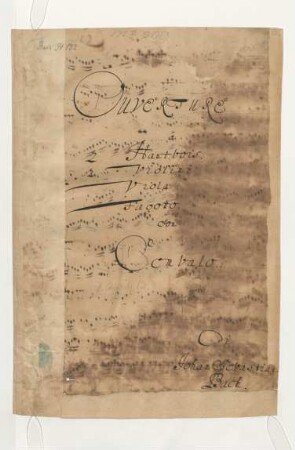 OUVERTURE
à
2 Hautbois
2 Violini
Viola
Fagoto
con
Cembalo
Johan Sebastian
Bach